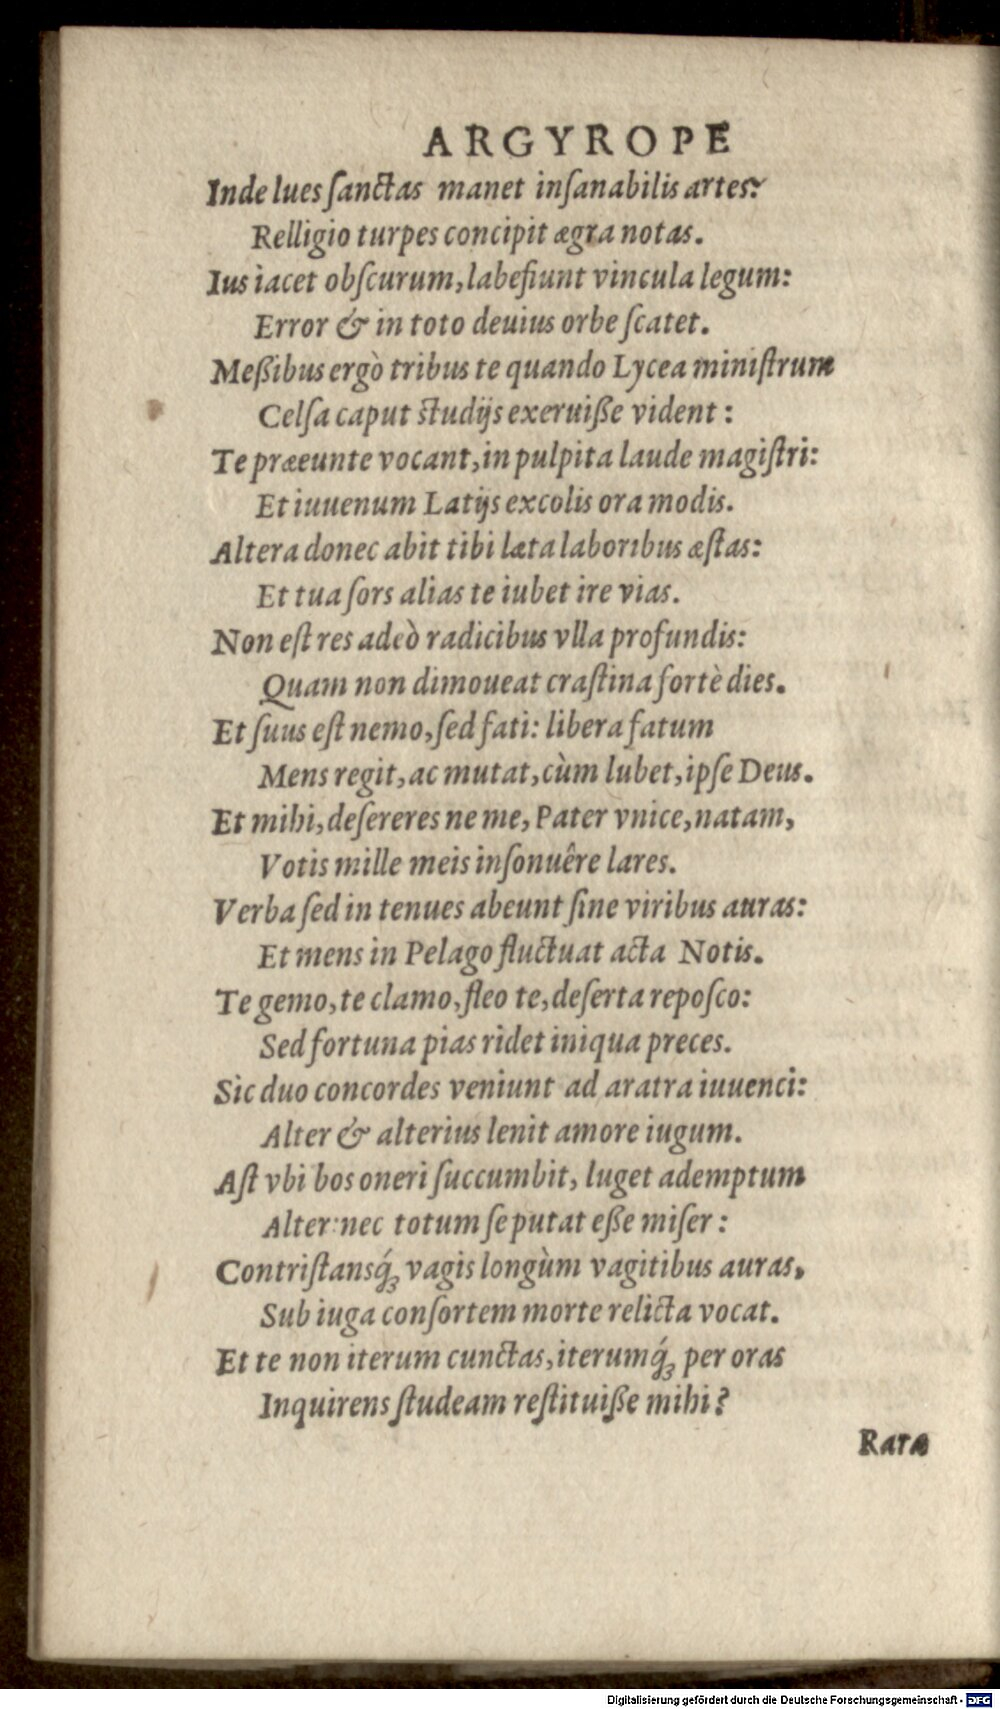 ARGYROPE
Inde lues ſanctas manet inſanabilis artes:
Relligio turpes concipit ægra notas.
Ius iacet obſcurum, labefiunt vincula legum:
Error & in toto deuius orbe ſcatet.
Meßibus ergò tribus te quando Lycea miniſtrum
Celſa caput ſtudijs exeruiße vident:
Te præeunte vocant, in pulpita laude magiſtri:
Et iuuenum Latijs excolis ora modis.
Altera donec abit tibi læta laboribus æſtas:
Et tua ſors alias te iubet ire vias.
Non eſt res adeò radicibus vlla profundis:
Quam non dimoueat craſtina fortè dies.
Et ſuus eſt nemo, ſed fati: libera fatum
Mens regit, ac mutat, cùm lubet, ipſe Deus.
Et mihi, deſereres ne me, Pater vnice, natam,
Votis mille meis inſonuêre lares.
Verba ſed in tenues abeunt ſine viribus auras:
Et mens in Pelago fluctuat acta Notis.
Te gemo, te clamo, fleo te, deſerta repoſco:
Sed fortuna pias ridet iniqua preces.
Sic duo concordes veniunt ad aratra iuuenci:
Alter & alterius lenit amore iugum.
Aſt vbi bos oneri ſuccumbit, luget ademptum
Alter: nec totum ſe putat eße miſer:
Contriſtansq́ꝫ vagis longùm vagitibus auras,
Sub iuga conſortem morte relicta vocat.
Et te non iterum cunctas, iterumq́ꝫ per oras
Inquirens ſtudeam reſtituiße mihi?
Raræ
Digitalisierung gefördert durch die Deutsche Forschungsgemeinschaft - DFG